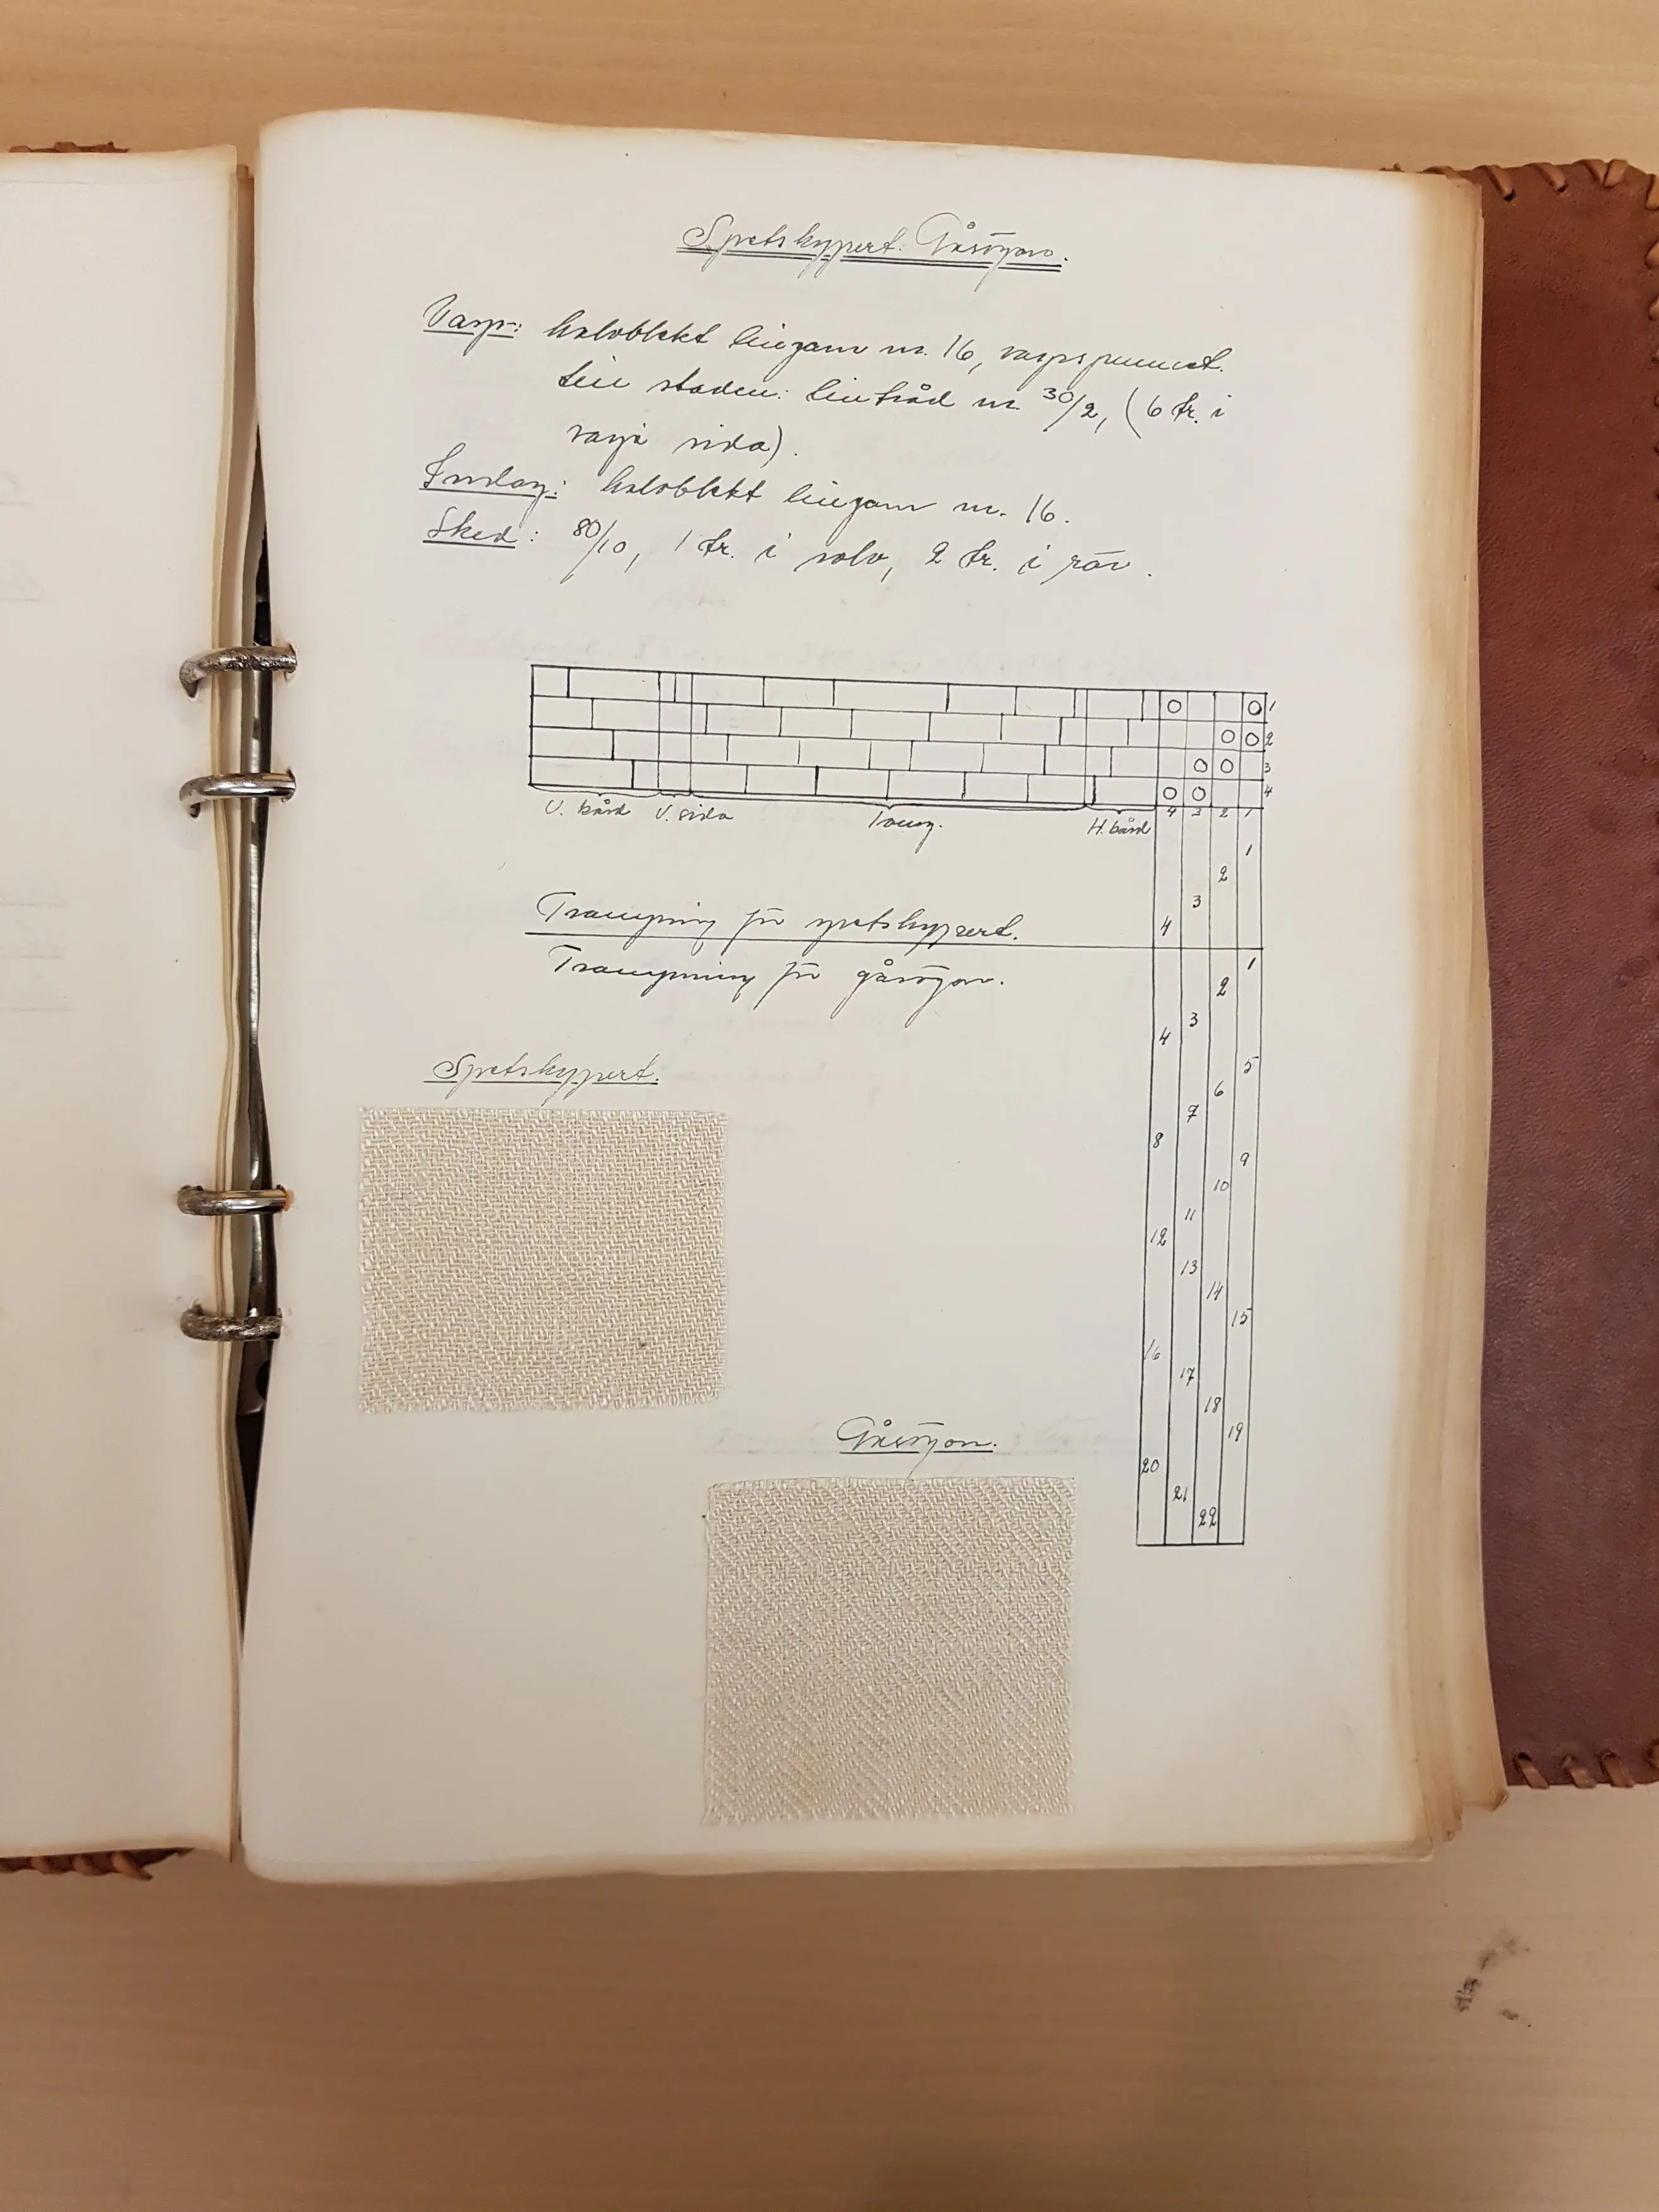 Spetskypert. Gåsögon.
Varp: halvblekt lingarn nr. 16, varpspunnet.
Till staden: lintråd nr. 30/2, (6 tr. i
varje sida).
Inslag: halvblekt lingarn nr. 16.
Sked: 80/10, 1 tr. i solv, 2 tr. i rör.
1
2
3
4
V. bård V. sida H. bård 4 3 2 1
1
2
3
4
Trampning för spetskypert.
Trampning för gåsögon.
1
2
3
4
5
6
7
8
9
10
11
12
13
14
15
16
17
18
19
20
21
22
Spetskypert.
Gåsögon.